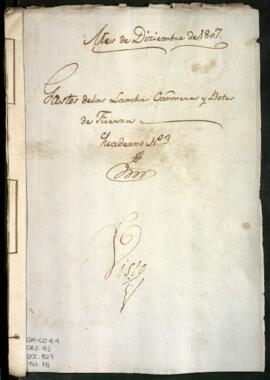 Mes de Diziembre de 1807.
Gastos de las Lanchas Cañoneras y Botes
de Fuerza
Quaderno Nº 3
Visto
GM-CO 4.4
CAJ. 91
DOC. 827
Fol. 18